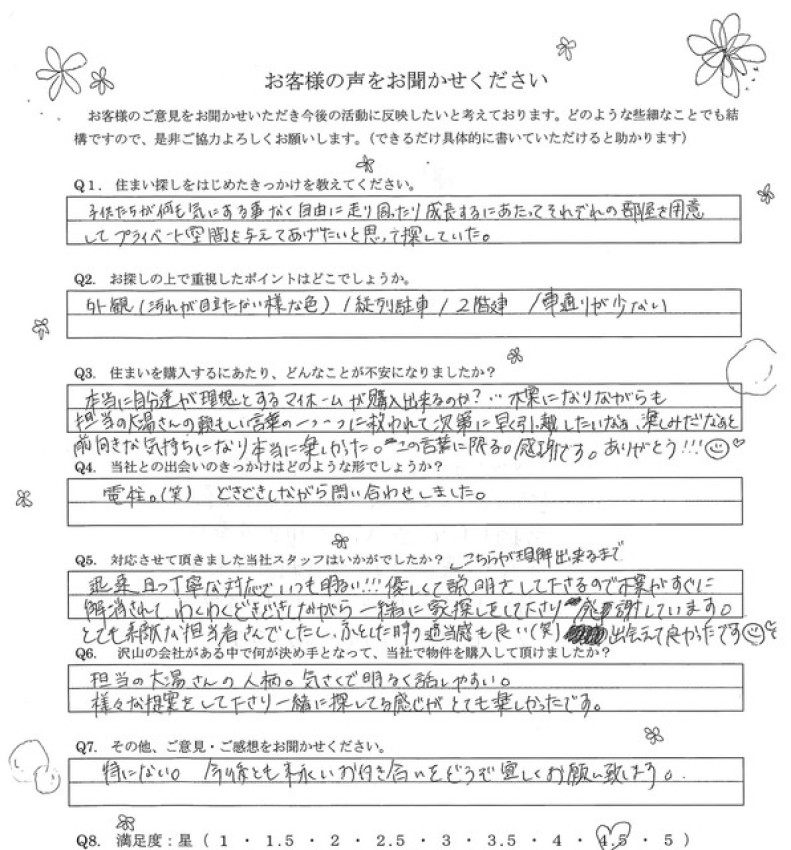 お客様の声をお聞かせください
お客様のご意見をお聞かせいただき今後の活動に反映したいと考えております。どのような些細なことでも結
構ですので、是非ご協力よろしくお願いします。（できるだけ具体的に書いていただけると助かります）
Q1． 住まい探しをはじめたきっかけを教えてください。
子供たちが何も気にする事なく自由に走り回ったり成長するにあたってそれぞれの部屋を用意
してプライベート空間を与えてあげたいと思って探していた。
Q2. お探しの上で重視したポイントはどこでしょうか。
外観（汚れが目立たない様な色）/ 縦列駐車 / 2階建 / 車通りが少ない
Q3. 住まいを購入するにあたり、どんなことが不安になりましたか？
本当に自分達が理想とするマイホームが購入出来るのか？… 不安になりながらも
担当の大湯さんの頼もしい言葉の一つ一つに救われて次第に早く引越したいなぁ、楽しみだなぁと
前向きな気持ちになり本当に楽しかった。この言葉に限る。感謝です。ありがとう!!!
Q4. 当社との出会いのきっかけはどのような形でしょうか？
電柱。(笑) どきどきしながら問い合わせしました。
Q5. 対応させて頂きました当社スタッフはいかがでしたか？
こちらが理解出来るまで
迅速且つ丁寧な対応でいつも明るい!!! 優しくて説明をして下さるので不安がすぐに
解消されて わくわくどきどきしながら 一緒に家探しをして下さり 感謝しています。
とても素敵な担当者さんでしたし、ふとした時の適当感も良い(笑) 出会えて良かったです
Q6. 沢山の会社がある中で何が決め手となって、当社で物件を購入して頂けましたか？
担当の大湯さんの人柄。気さくで明るく話しやすい。
様々な提案をして下さり一緒に探してる感じがとても楽しかったです。
Q7. その他、ご意見・ご感想をお聞かせください。
特にない。 今後とも末永いお付き合いをどうぞ宜しくお願い致します。
Q8. 満足度：星（ 1 ・ 1.5 ・ 2 ・ 2.5 ・ 3 ・ 3.5 ・ 4 ・ 4.5 ・ 5 ）